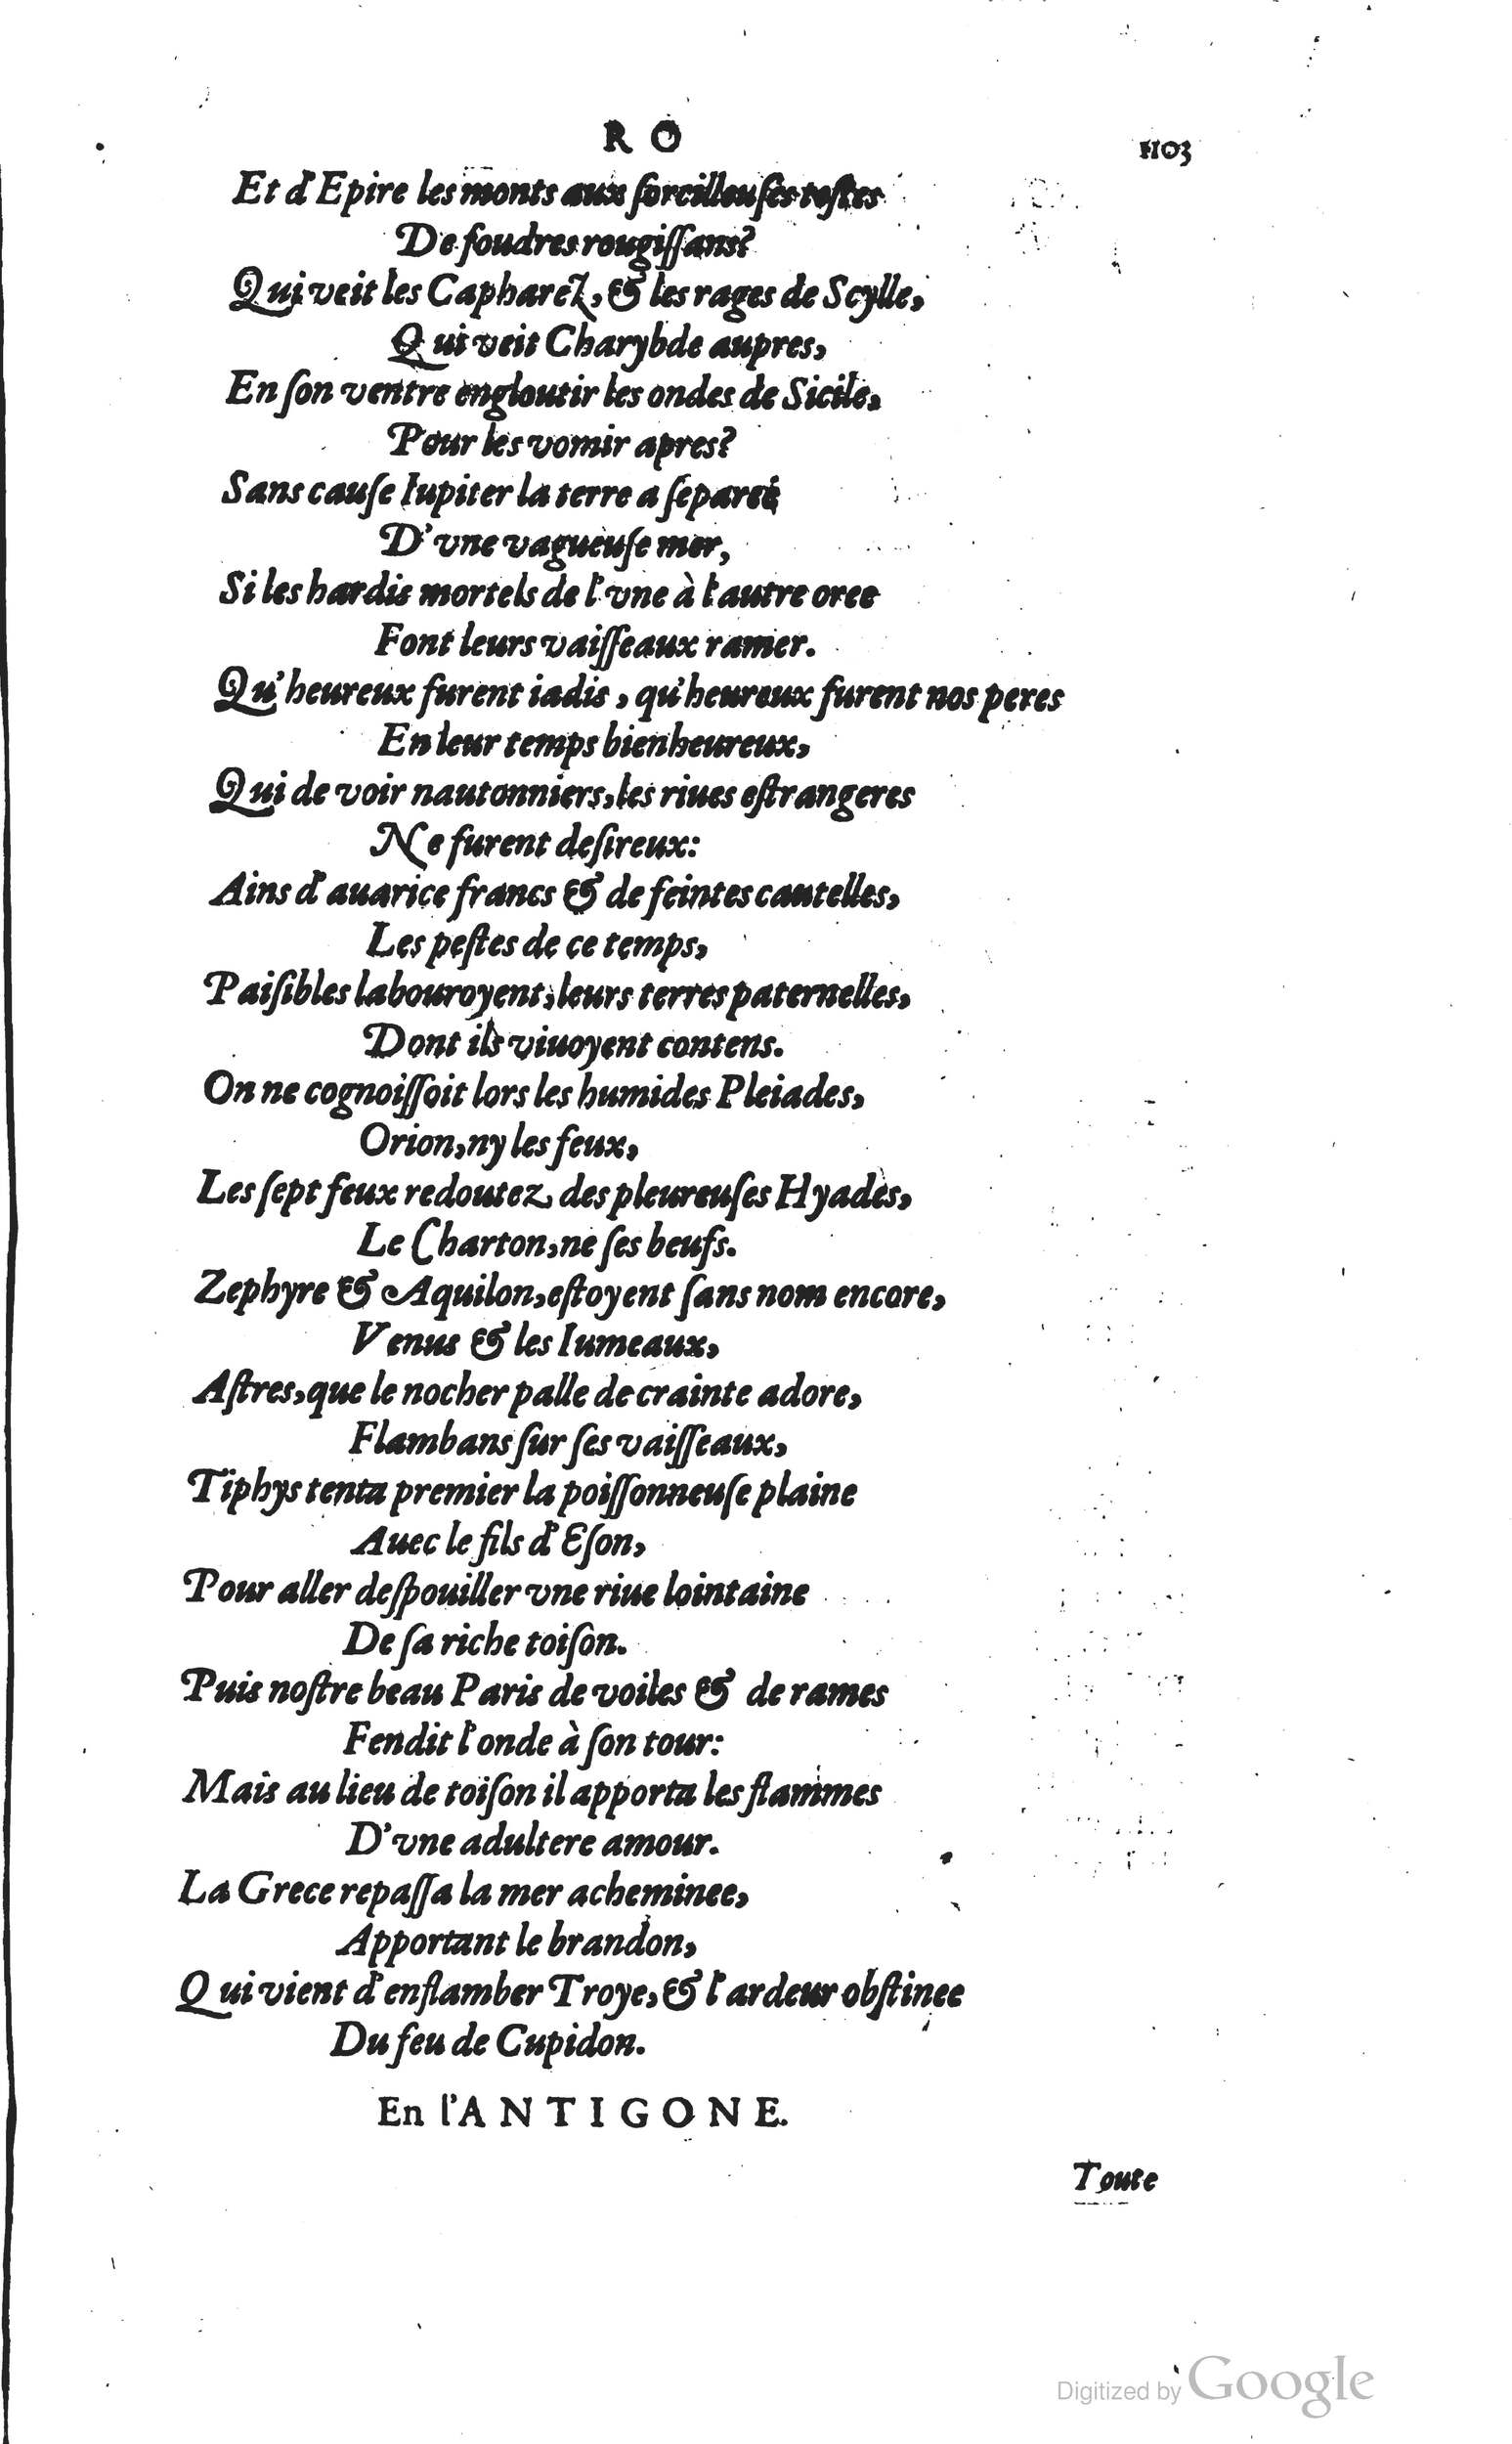 R O
1103
Et d'Epire les monts aux ſorcilleuſes teſtes
De foudres rougiſſans?
Qui veit les Capharez, & les rages de Scylle,
Qui veit Charybde aupres,
En ſon ventre engloutir les ondes de Sicile,
Pour les vomir apres?
Sans cauſe Iupiter la terre a ſeparee
D'vne vagueuſe mer,
Si les hardis mortels de l'vne à l'autre oree
Font leurs vaiſſeaux ramer.
Qu'heureux furent iadis, qu'heureux furent nos peres
En leur temps bienheureux,
Qui de voir nautonniers, les riues eſtrangeres
Ne furent deſireux:
Ains d'auarice francs & de feintes cautelles,
Les peſtes de ce temps,
Paiſibles labouroyent, leurs terres paternelles,
Dont ils viuoyent contens.
On ne cognoiſſoit lors les humides Pleiades,
Orion, ny les feux,
Les ſept feux redoutez des pleureuſes Hyades,
Le Charton, ne ſes beufs.
Zephyre & Aquilon, eſtoyent ſans nom encore,
Venus & les Iumeaux,
Aſtres, que le nocher palle de crainte adore,
Flambans ſur ſes vaiſſeaux,
Tiphys tenta premier la poiſſonneuſe plaine
Auec le fils d'Eſon,
Pour aller deſpouiller vne riue lointaine
De ſa riche toiſon.
Puis noſtre beau Paris de voiles & de rames
Fendit l'onde à ſon tour:
Mais au lieu de toiſon il apporta les flammes
D'vne adultere amour.
La Grece repaſſa la mer acheminee,
Apportant le brandon,
Qui vient d'enflamber Troye, & l'ardeur obſtinee
Du feu de Cupidon.
En l'ANTIGONE.
Toute
Digitized by Google